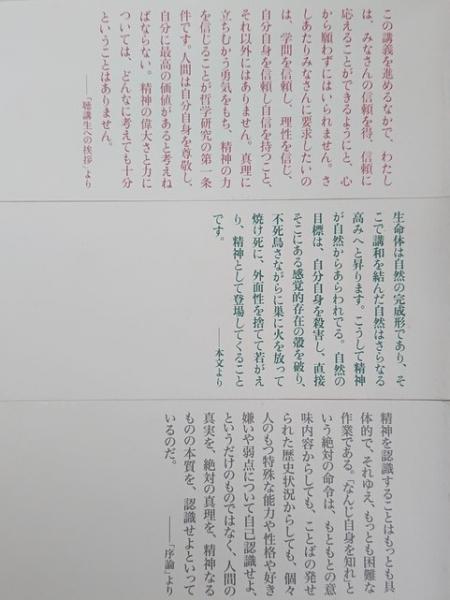 この講義を進めるなかで、わたし
は、みなさんの信頼を得、信頼に
応えることができるようにと、心
から願わずにはいられません。さ
しあたりみなさんに要求したいの
は、学問を信頼し、理性を信じ、
自分自身を信頼し自信を持つこと、
それ以外にはありません。真理に
立ちむかう勇気をもち、精神の力
を信じることが哲学研究の第一条
件です。人間は自分自身を尊敬し、
自分に最高の価値があると考えね
ばならない。精神の偉大さと力に
ついては、どんなに考えても十分
ということはありません。
――「聴講生への挨拶」より
生命体は自然の完成形であり、そ
こで講和を結んだ自然はさらなる
高みへと昇ります。こうして精神
が自然からあらわれでる。自然の
目標は、自分自身を殺害し、直接
そこにある感覚的存在の殻を破り、
不死鳥さながらに巣に火を放って
焼け死に、外面性を捨てて若がえ
り、精神として登場してくること
です。
――本文より
精神を認識することはもっとも具
体的で、それゆえ、もっとも困難な
作業である。「なんじ自身を知れ」と
いう絶対の命令は、もともとの意
味内容からしても、ことばの発せ
られた歴史状況からしても、個々
人のもつ特殊な能力や性格や好き
嫌いや弱点について自己認識せよ、
というだけのものではなく、人間の
真実を、絶対の真理を、精神なる
ものの本質を、認識せよといって
いるのだ。
――「序論」より